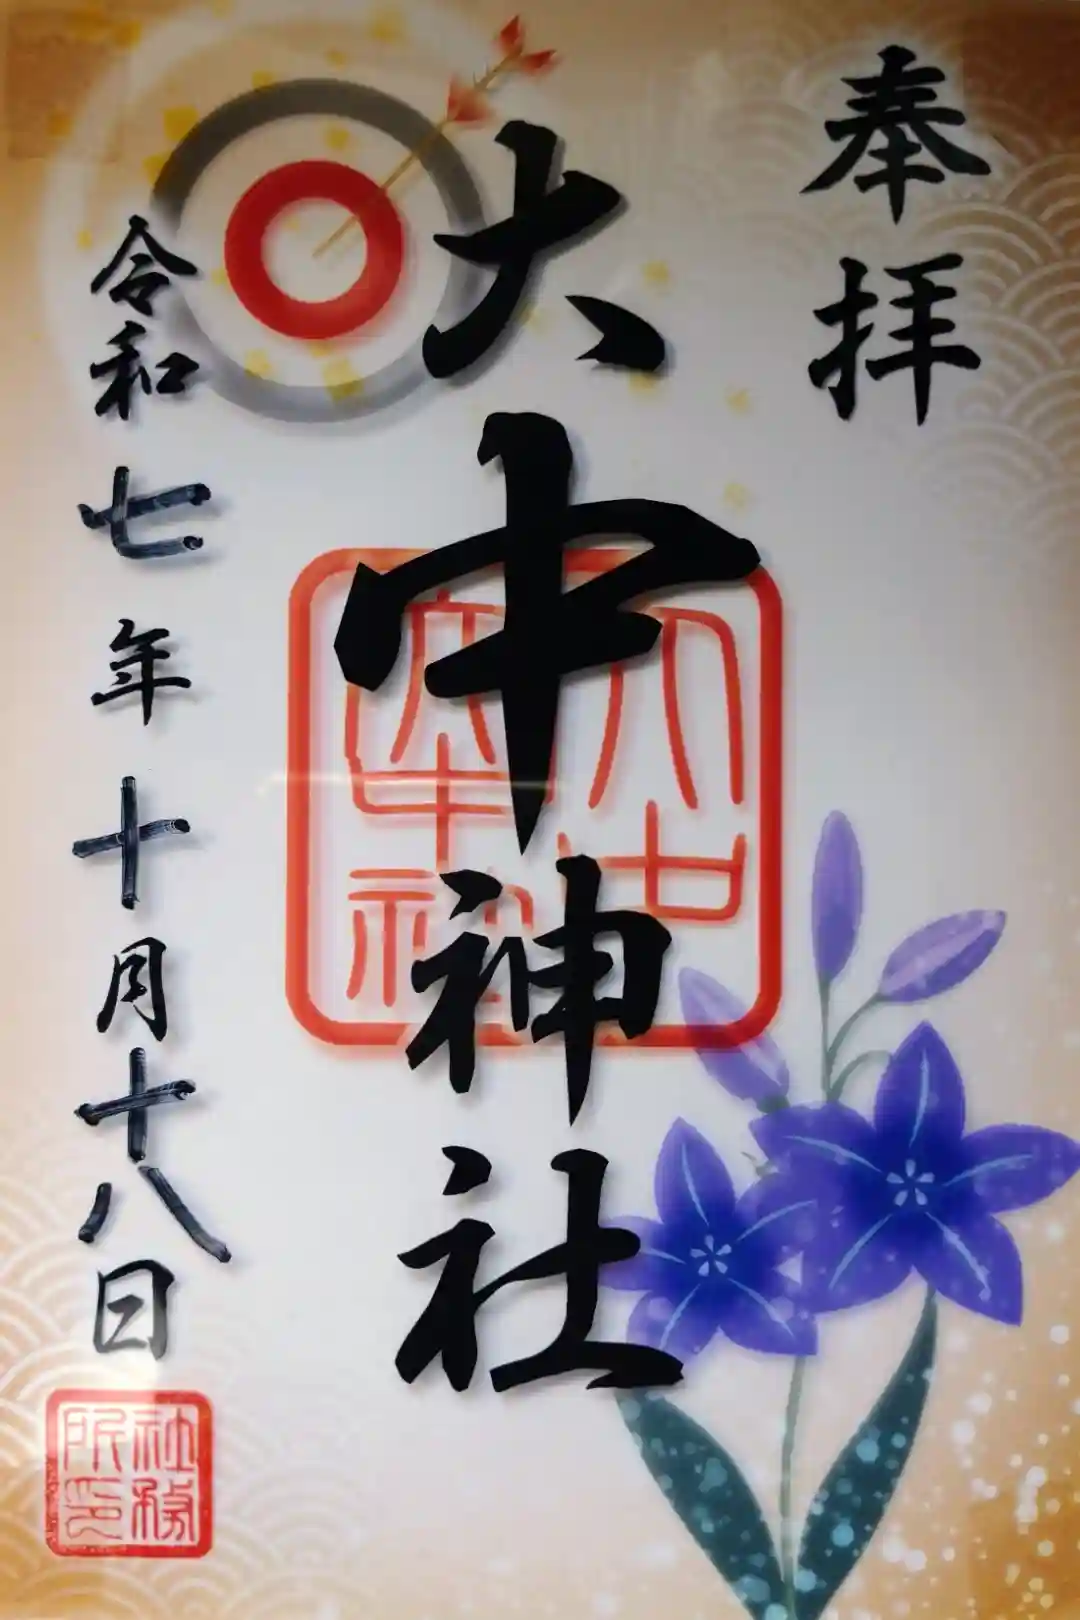 奉拝
大中神社
大中神社
令和七年十月十八日
社務所印